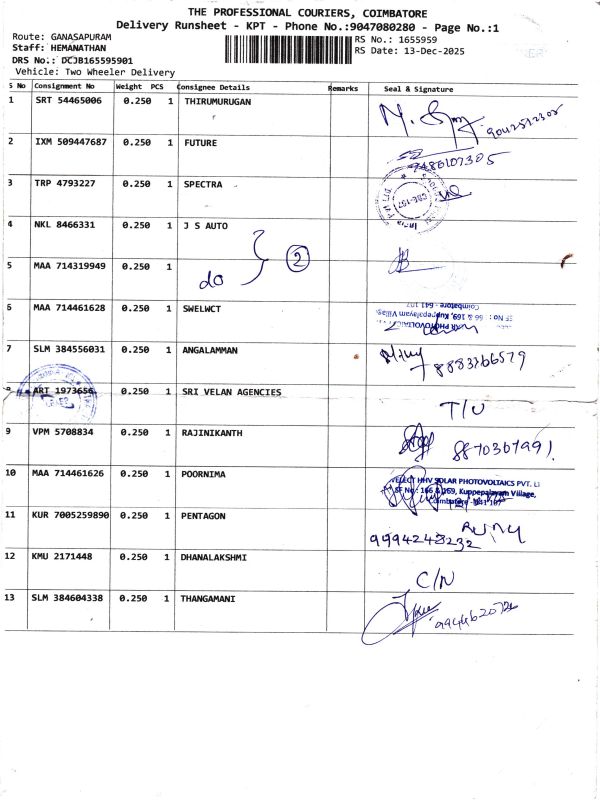 THE PROFESSIONAL COURIERS, COIMBATORE
Delivery Runsheet - KPT - Phone No.:9047080280 - Page No.:1
Route: GANASAPURAM
RS No.: 1655959
Staff: HEMANATHAN
RS Date: 13-Dec-2025
DRS No.: DCJB165595901
Vehicle: Two Wheeler Delivery
S No Consignment No Weight PCS Consignee Details Remarks Seal & Signature
1 SRT 54465006 0.250 1 THIRUMURUGAN
2 IXM 509447687 0.250 1 FUTURE
3 TRP 4793227 0.250 1 SPECTRA
4 NKL 8466331 0.250 1 J S AUTO
5 MAA 714319949 0.250 1 do 2
6 MAA 714461628 0.250 1 SWELWCT
66 & 169, Kuppepalayam Village
Coimbatore - 641 107
7 SLM 384556031 0.250 1 ANGALAMMAN
8 ART 1973656 0.250 1 SRI VELAN AGENCIES T/U
9 VPM 5708834 0.250 1 RAJINIKANTH 8870367991
10 MAA 714461626 0.250 1 POORNIMA
HHV SOLAR PHOTOVOLTAICS PVT.
SF No: 166 & 169, Kuppepalayam Village,
Coimbatore - 641 107
11 KUR 7005259890 0.250 1 PENTAGON 9994248232
12 KMU 2171448 0.250 1 DHANALAKSHMI C/N
13 SLM 384604338 0.250 1 THANGAMANI